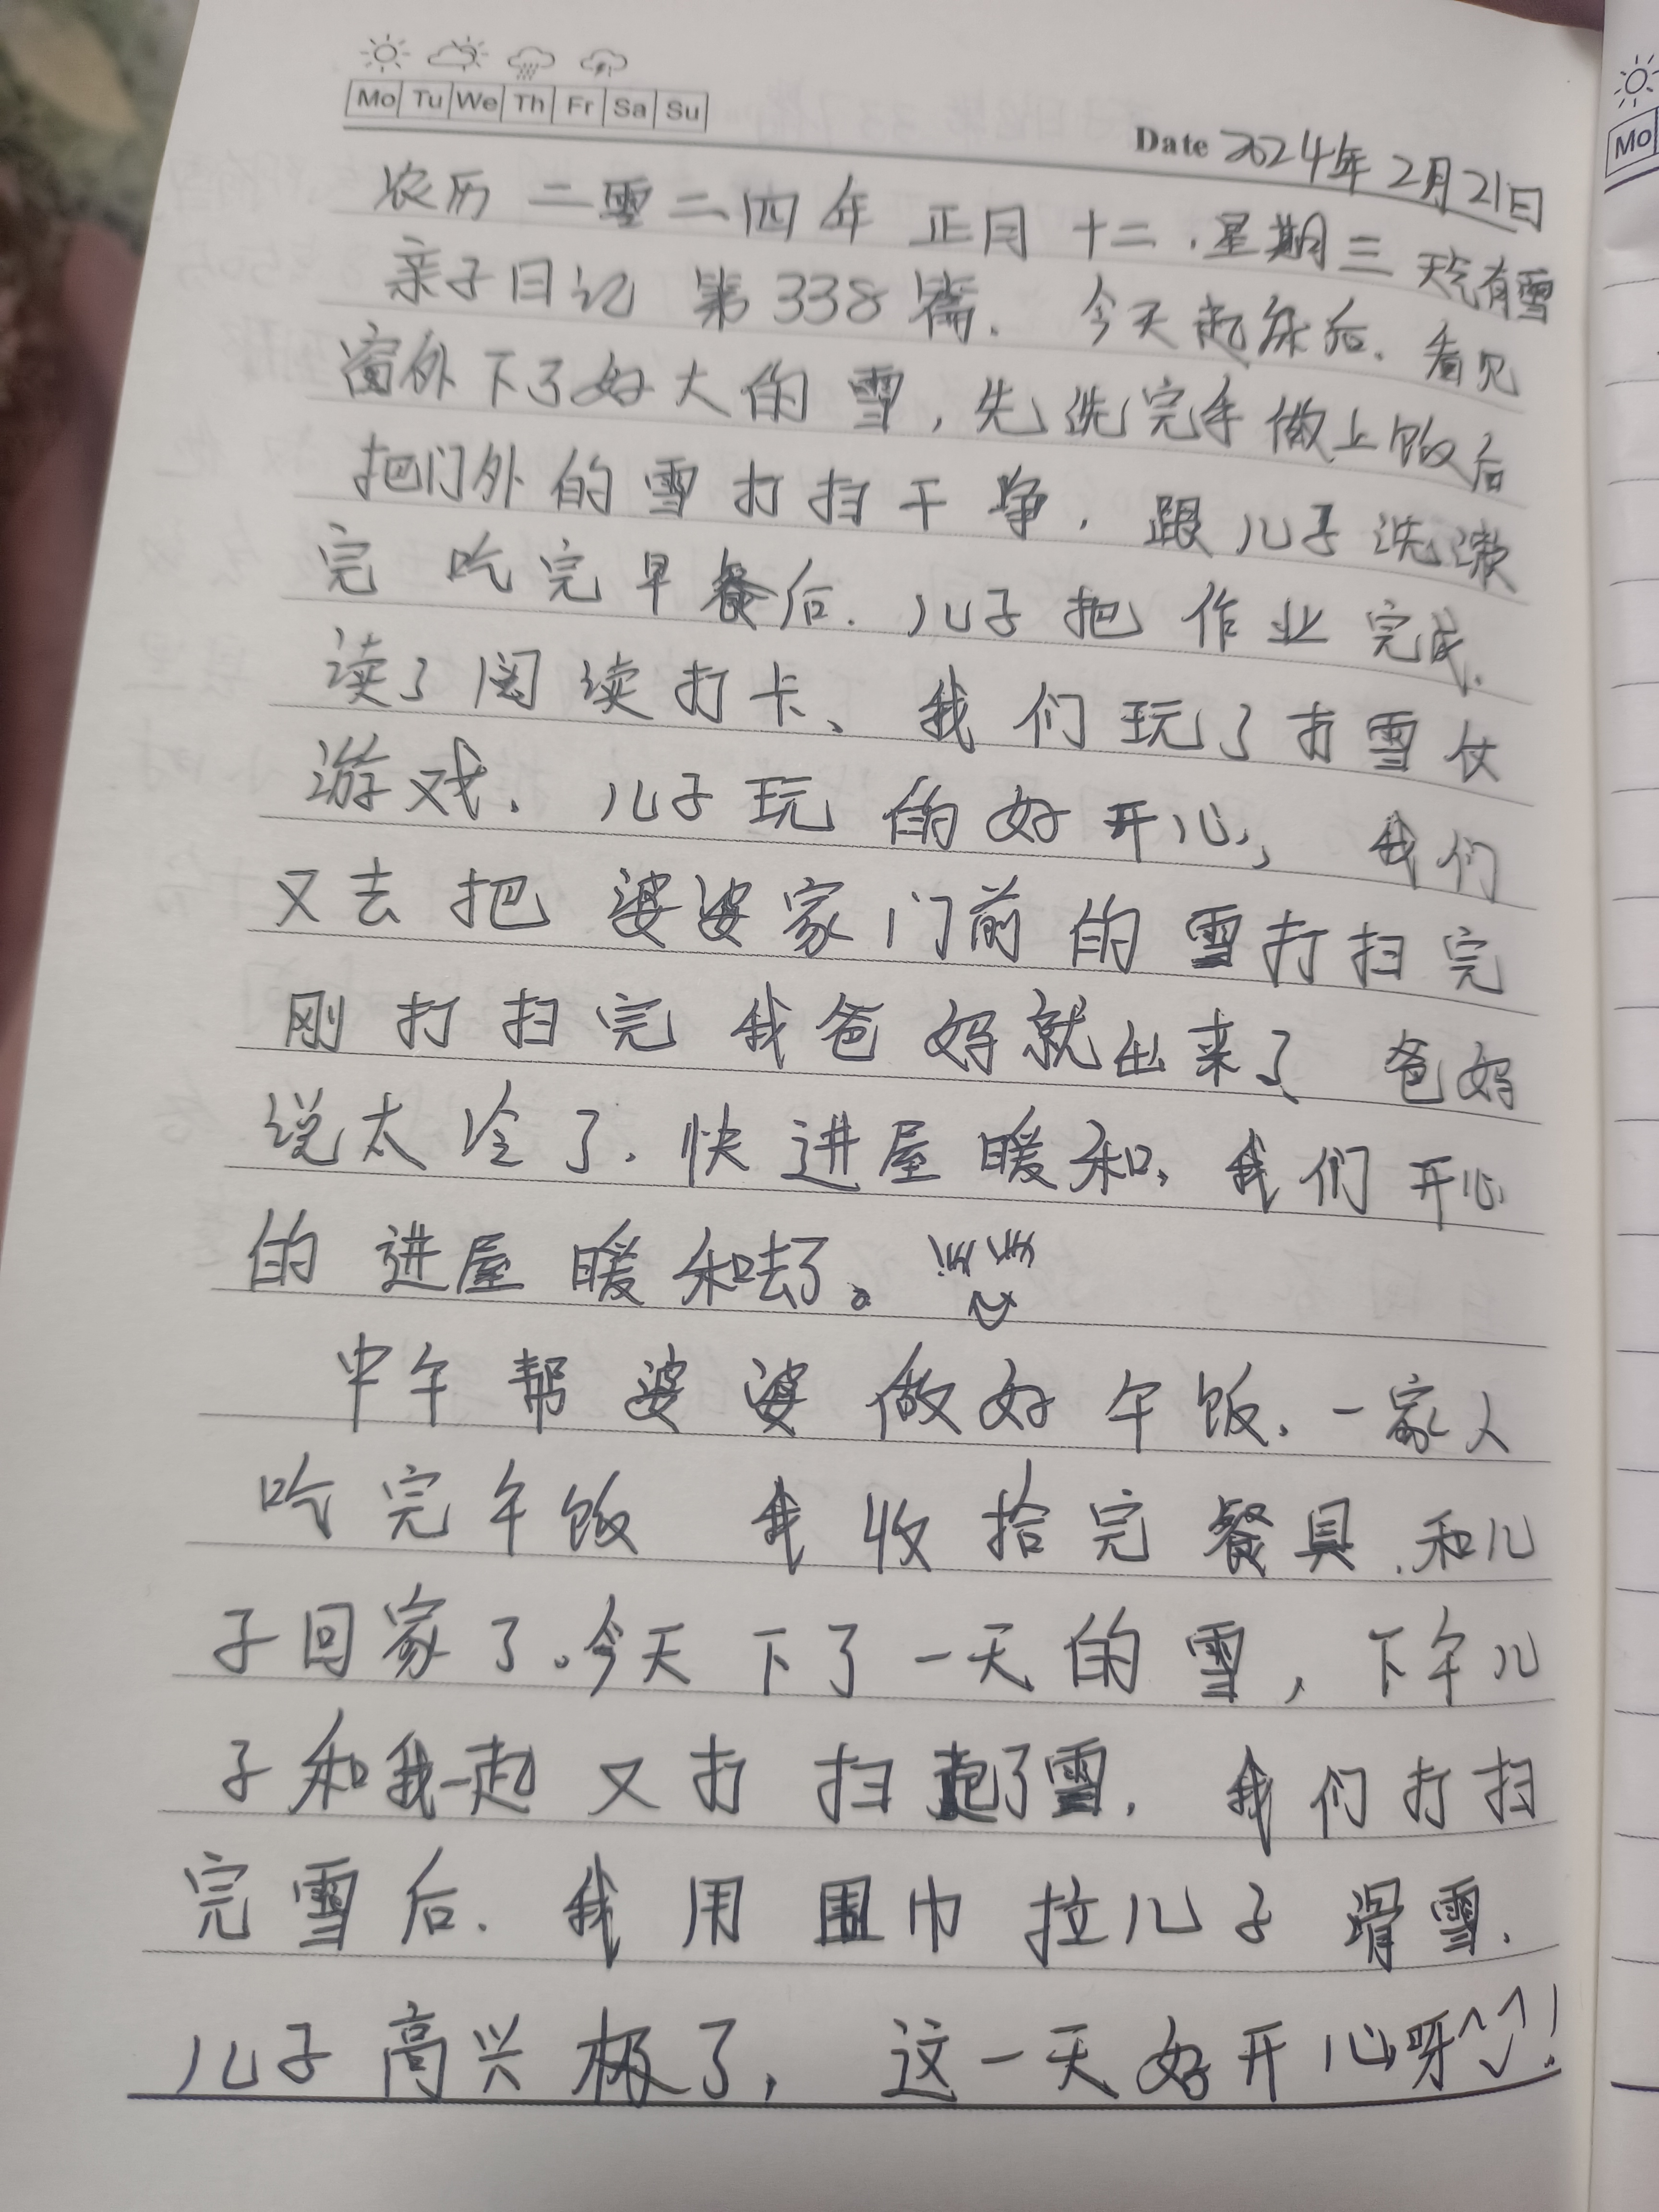 Mo Tu We Th Fr Sa Su
Date 2024年2月21日
农历 二零二四年 正月十二.星期三 天气有雪
亲子日记 第338篇. 今天起床后.看见
窗外下了好大的雪,先洗完手做上饭后
把门外的雪打扫干净.跟儿子洗漱
完 吃完早餐后.儿子把作业完成.
读了阅读打卡、我们玩了打雪仗
游戏.儿子玩的好开心, 我们
又去把婆婆家门前的雪打扫完
刚打扫完我爸妈就出来了 爸妈
说太冷了.快进屋暖和,我们开心
的进屋暖和去了。
中午帮婆婆做好午饭.一家人
吃完午饭 我收拾完餐具.和儿
子回家了。今天下了一天的雪,下午儿
子和我一起又打扫起了雪.我们打扫
完雪后.我用围巾拉儿子滑雪.
儿子高兴极了, 这一天好开心呀^^!
Mo